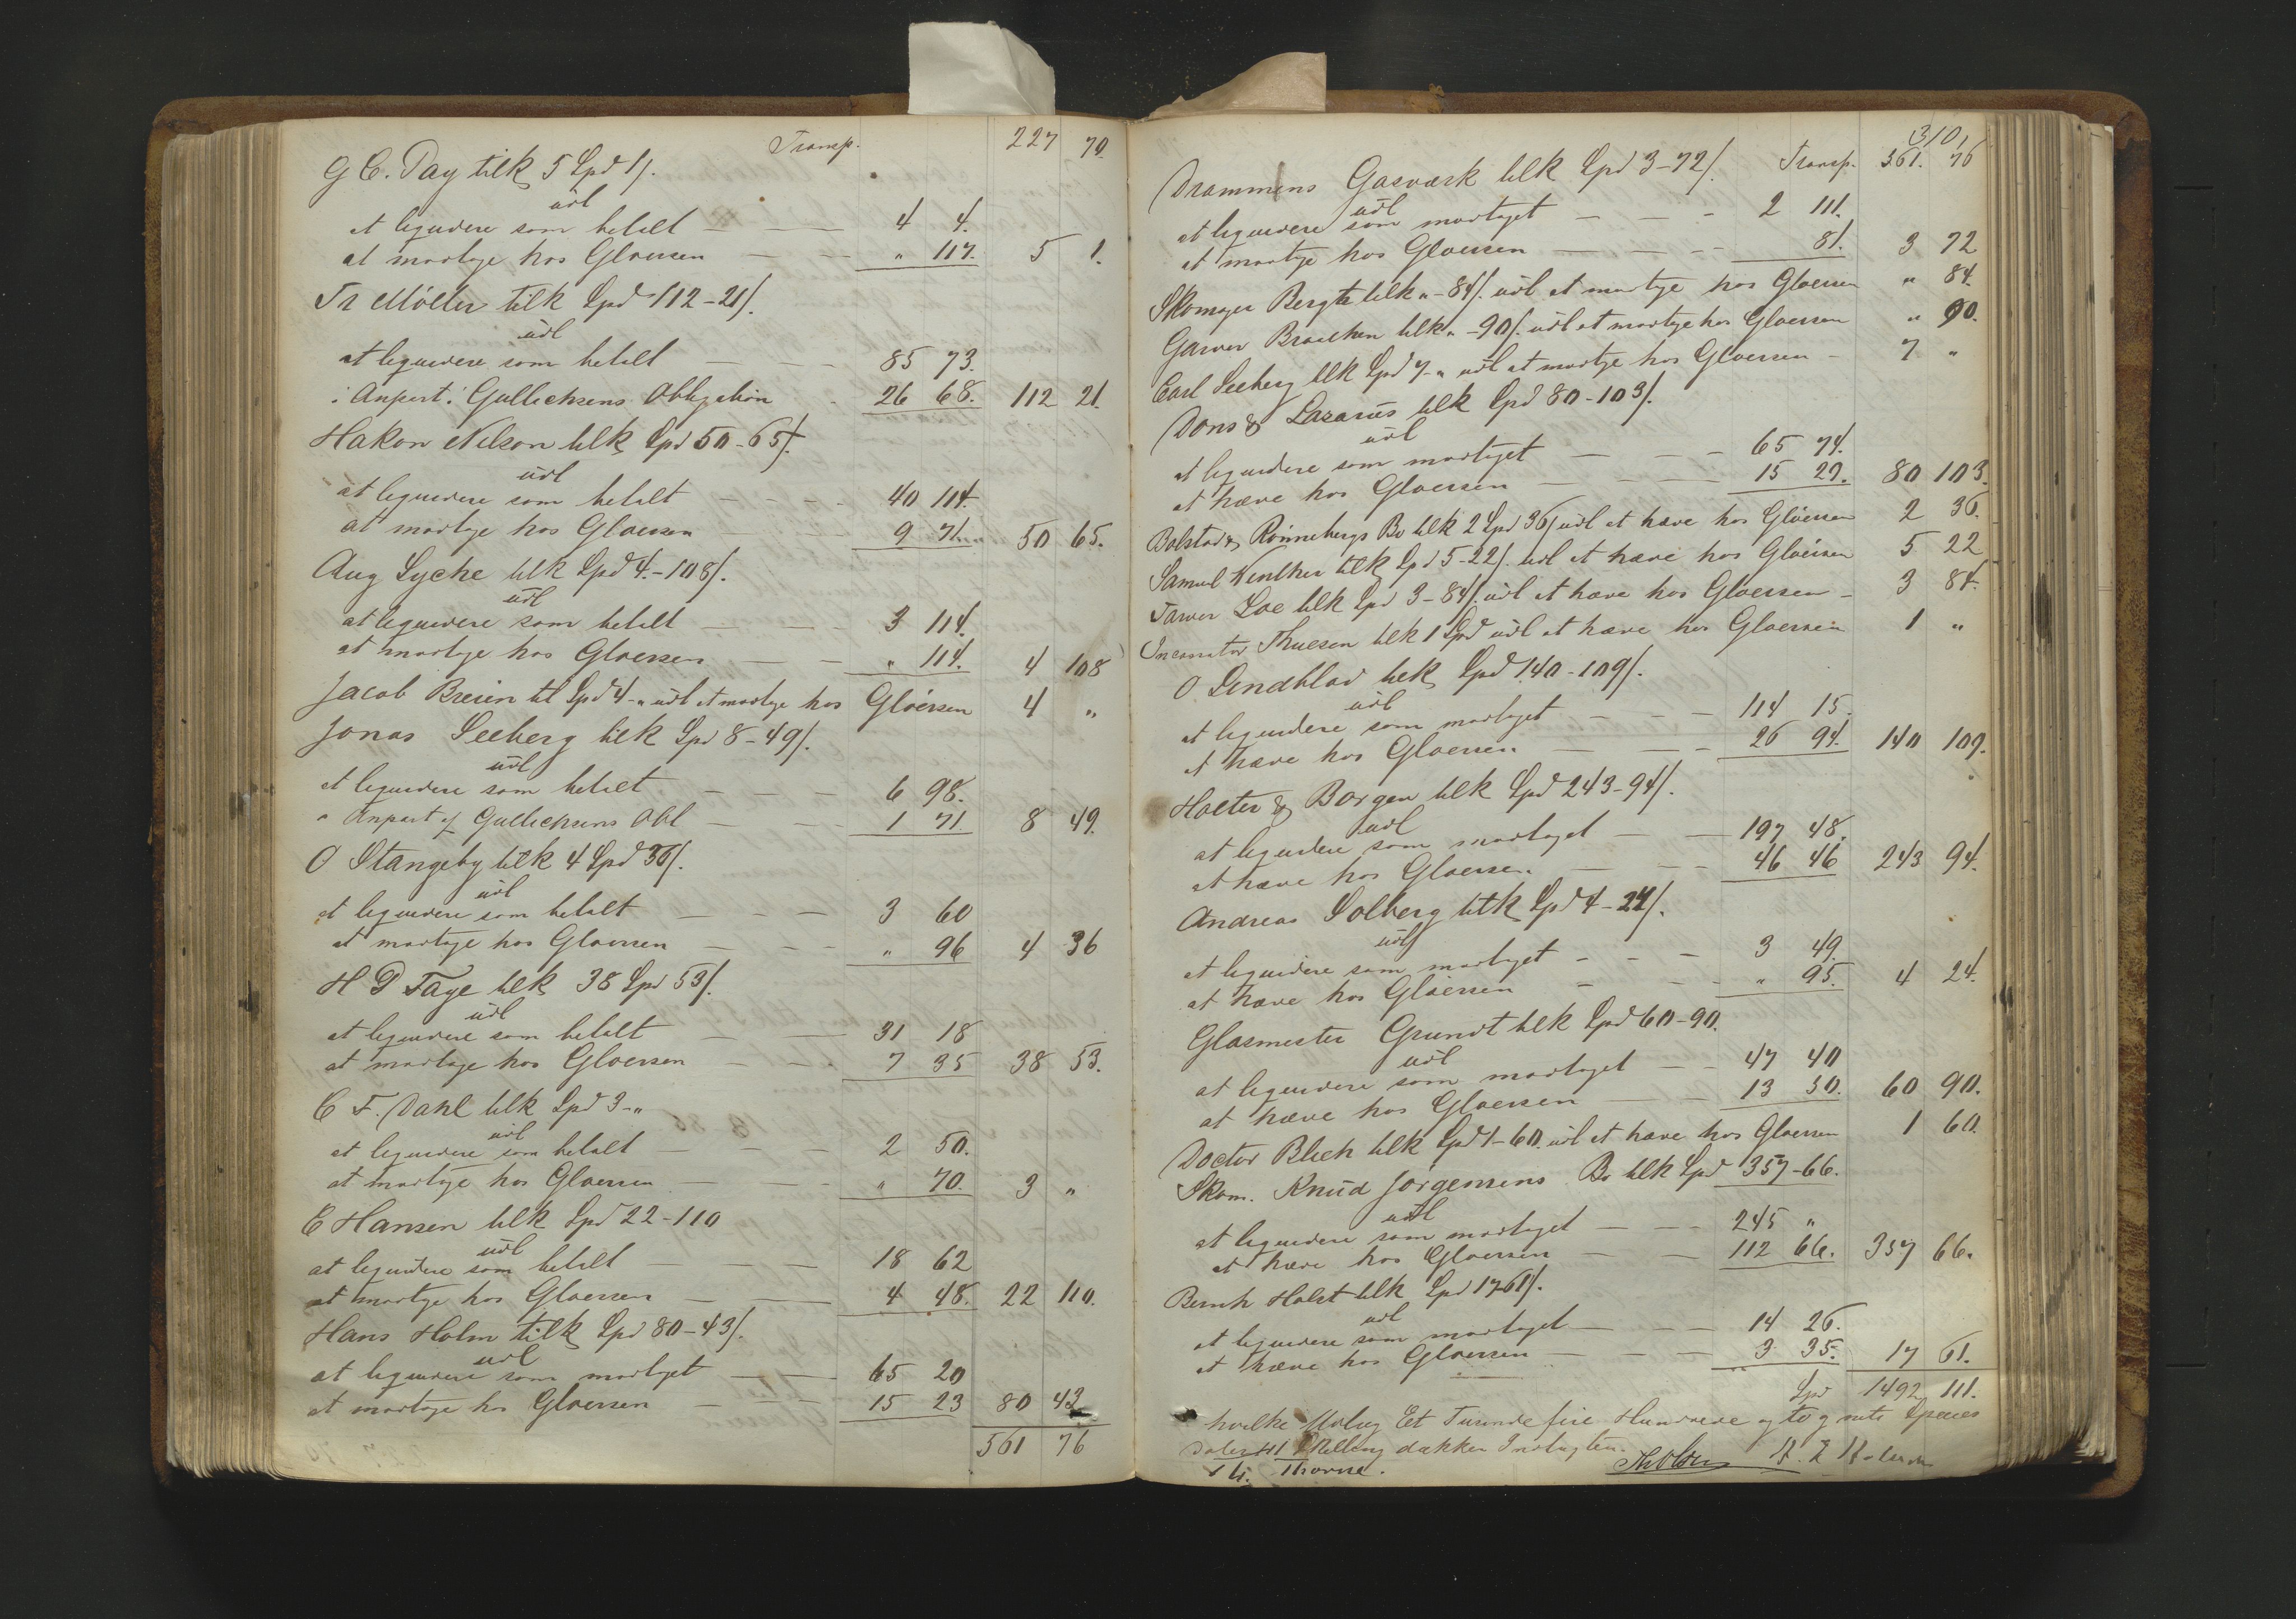 Transp. 227 70.
G C. Day tilk 5 Spd 1/.
udl
at liqvidere som betalt — — 4 4.
at modtage hos Gloersen — — " 117. 5 1.
Fr Møller tilk Spd 112-21/.
udl
at liqvidere som betalt — — 85 73.
i Anpart i Gullichsens Obligation 26 68. 112 21.
Hakon Nilson tilk Spd 50-65/.
udl
at liqvidere som betalt — — — 40 114.
at modtage hos Gloersen — — 9 71. 50 65.
Aug Lyche tilk Spd 4-108/.
udl
at liqvidere som betalt — — 3 114.
at modtage hos Gloersen — — " 114. 4 108
Jacob Breien til Spd 4-" udl at modtage hos Gloërsen 4 "
Jonas Seeberg tilk Spd 8-49/.
udl
at liqvidere som betalt — — — 6 98.
" Anpart af Gullichsens Obl — — 1 71 8 49.
O Stangeby tilk 4 Spd 36/.
udl
at liqvidere som betalt — — — 3 60
at modtage hos Gloersen — — — " 96 4 36
H D Faye tilk 38 Spd 53/.
udl
at liqvidere som betalt — — 31 18
at modtage hos Gloersen — — 7 35 38 53.
C F. Dahl tilk Spd 3-"
udl
at liqvidere som betalt — — — 2 50.
at modtage hos Gloersen — — — " 70. 3 "
E Hansen tilk Spd 22-110
udl
at liqvidere som betalt — — — 18 62
at modtage hos Gloersen — — 4 48. 22 110.
Hans Holm tilk Spd 80-43/.
udl
at liqvidere som modtaget — — 65 20
at modtage hos Gloersen — — 15 23 80 43
561 76
310
Transp. 561. 76
Drammens Gasværk tilk Spd 3-72/.
udl
at liqvidere som modtaget — — — 2 111.
at modtge hos Gloersen — — — 81. 3 72
Skomager Bergh tilk "-84/. udl at modtge hos Gloersen " 84.
Garver Braathen tilk "-90/. udl at modtage hos Gloersen " 90.
Carl Seeberg tilk Spd 7-" udl at modtge hos Gloersen — 7 "
Dons & Lazarus tilk Spd 80-103/.
udl
at liqvidere som modtaget — — — 65 74.
at hæve hos Gloersen — — — 15 29. 80 103.
Bolstad & Rønnebergs Bo tilk 2 Spd 36/ udl at hæve hos Gloërsen 2 36.
Samuel Winther tilk Spd 5-22/. udl at hæve hos Gloërsen 5 22
Farver Loe tilk Spd 3-84/. udl at hæve hos Gloersen — 3 84.
Incassator Thuesen tilk 1 Spd udl at hæve hos Gloersen 1 "
O Lindblad tilk Spd 140-109/.
udl
at liqvidere som modtaget — — — 114 15.
at hæve hos Gloersen — — — 26 94. 140 109.
Holter & Borgen tilk Spd 243-94/.
udl
at liqvidere som modtaget — — 197 48.
at hæve hos Gloersen — — 46 46 243 94.
Andreas Solberg tilk Spd 4-24/.
udl
at liqvidere som modtaget — — — 3 49.
at hæve hos Gloersen — — — " 95. 4 24.
Glasmester Grundt tilk Spd 60-90.
udl
at liqvidere som modtaget — — 47 40
at hæve hos Gloersen — — 13 50. 60 90.
Doctor Blich tilk Spd 1-60. udl at hæve hos Gloersen 1 60.
Skom. Knud Jørgensens Bo tilk Spd 357-66.
udl
at liqvidere som modtaget — — — 245 "
at hæve hos Gloersen — — 112 66. 357 66.
Bernh Holst tilk Spd 17-61/.
udl
at liqvidere som modtaget — — — 14 26.
at hæve hos Gloersen — — — 3 35. 17 61.
Spd 1492 111.
hvilke Et Tusinde fire Hundrede og to og niti Species
Daler 111 Skilling dækker Indtægten.